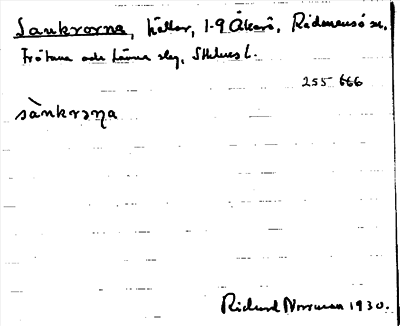 Sankrorna, hällar, 1-9 Åkerö, Rådmansö sn.
Frötuna och Länna slg, Sthlms l.
255 666
sànkrɔɳa
Richard Norrman 1930.